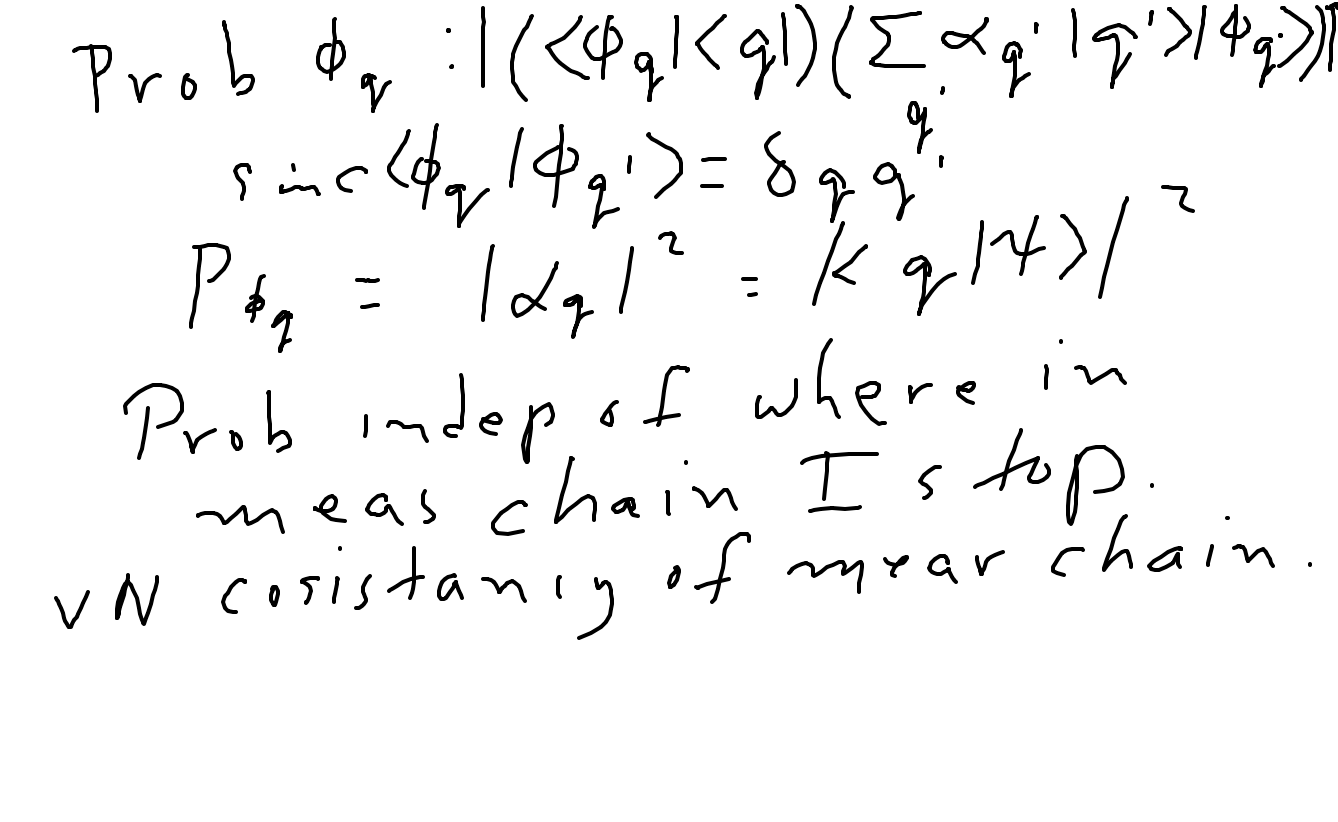 Prob ϕ_q : |(<ϕ_q|<q|)(∑_q' α_q' |q'>|ϕ_q'>)|
sinc <ϕ_q|ϕ_q'> = δ_qq'
P_ϕ_q = |α_q|² = |<q|ψ>|²
Prob indep of where in
meas chain I stop.
vN cosistancy of mear chain.